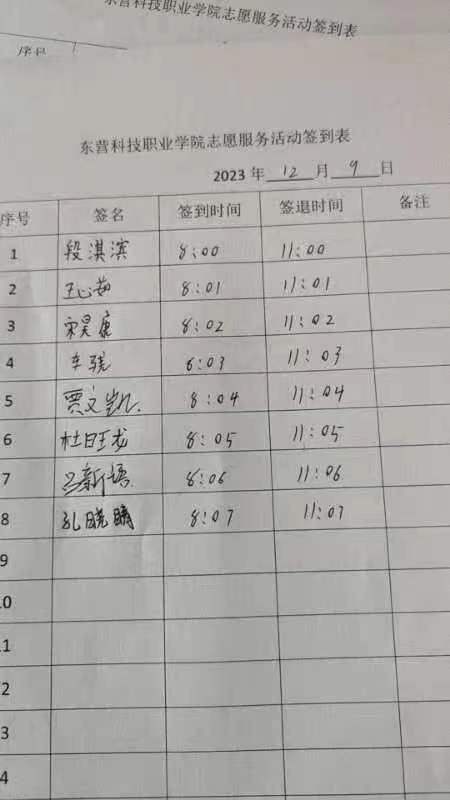 东营科技职业学院志愿服务活动签到表
序号
东营科技职业学院志愿服务活动签到表
2023 年 12 月 9 日
序号 签名 签到时间 签退时间 备注
1 段淇滨 8:00 11:00
2 王心茹 8:01 11:01
3 宋昊康 8:02 11:02
4 车骁 6:03 11:03
5 贾文凯 8:04 11:04
6 杜旺龙 8:05 11:05
7 吕新语 8:06 11:06
8 孔晓晴 8:07 11:07
9
0
1
2
3
4